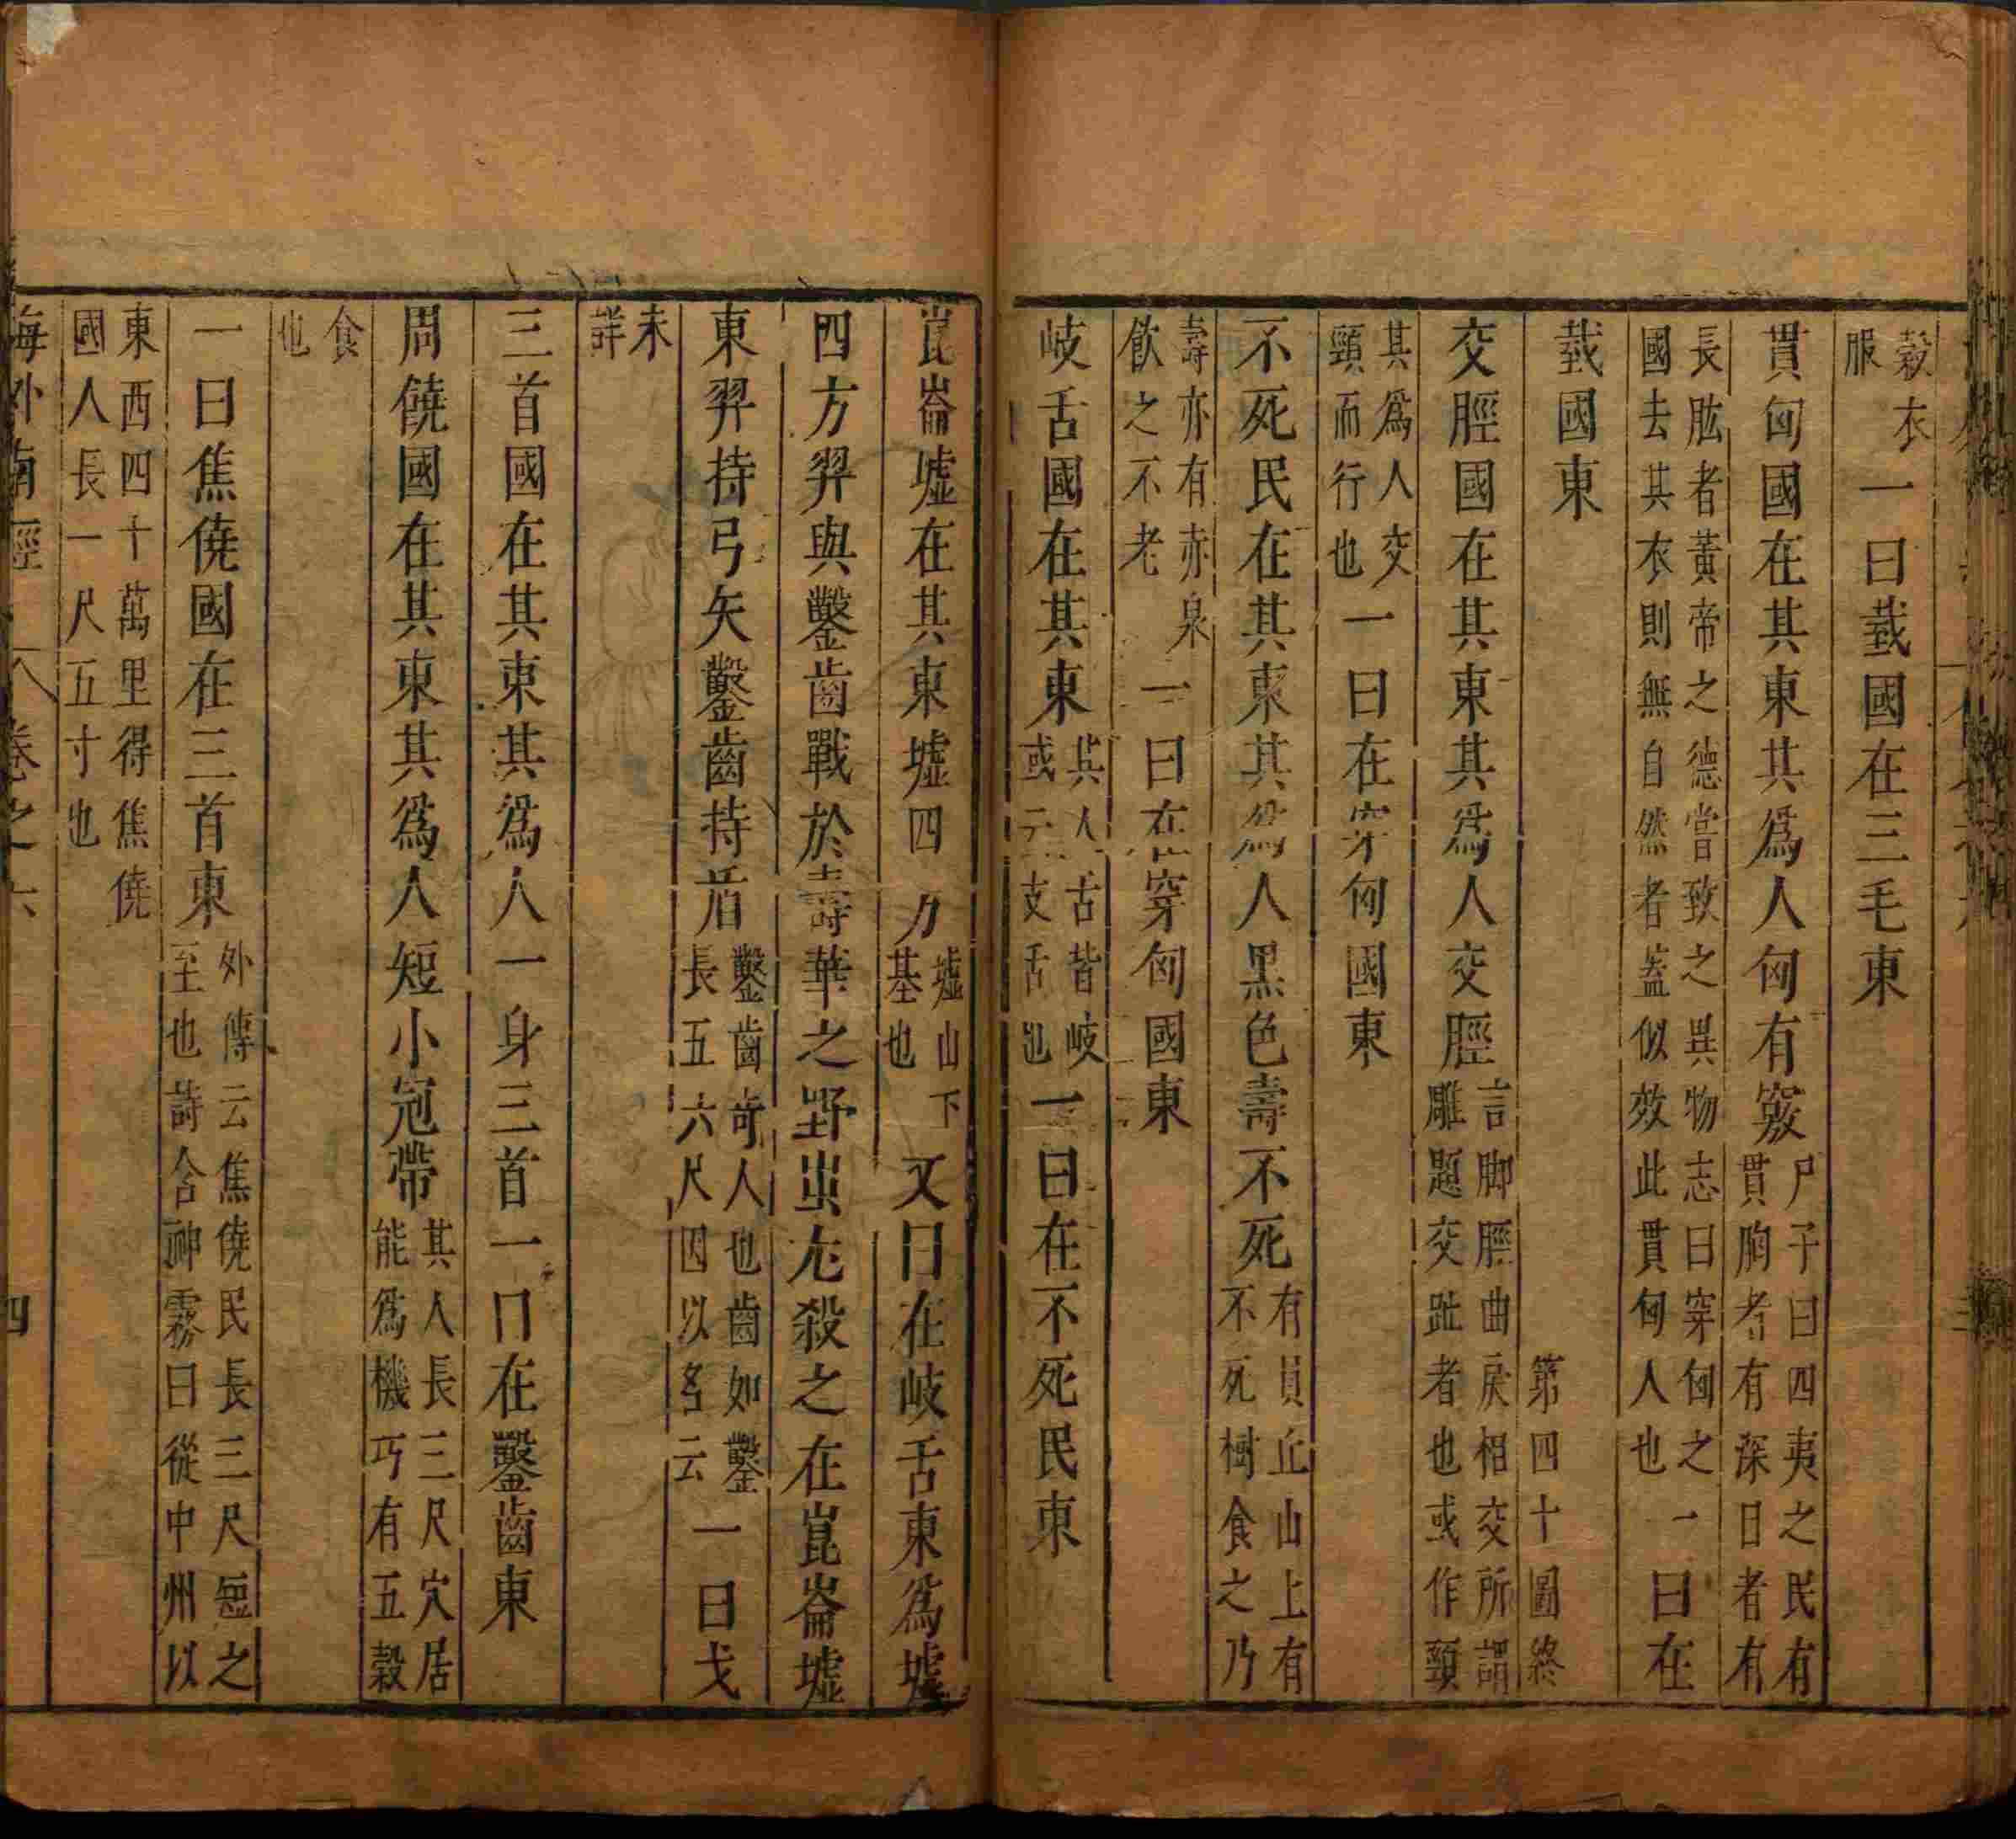 穀衣服一曰臷國在三毛東
貫匈國在其東其爲人匈有竅尸子曰四夷之民有貫胸者有深目者有
長肱者黃帝之德嘗致之異物志曰穿匈之國去其衣則無自然者蓋似效此貫匈人也一曰在
臷國東第四十圖終
交脛國在其東其爲人交脛言脚脛曲戾相交所謂雕題交趾者也或作頸
其爲人交頸而行也一曰在穿匈國東
不死民在其東其爲人黑色壽不死有員丘山上有不死樹食之乃
壽亦有赤泉飲之不老一曰在穿匈國東
岐舌國在其東其人舌皆岐或云支舌也一曰在不死民東
崑崙墟在其東墟四方墟山下基也又曰在岐舌東爲墟
四方羿與鑿齒戰於壽華之野羿射殺之在崑崙墟
東羿持弓矢鑿齒持盾鑿齒奇人也齒如鑿長五六尺因以名云一曰戈
未詳
三首國在其東其爲人一身三首一曰在鑿齒東
周饒國在其東其爲人短小冠帶其人長三尺穴居能爲機巧有五穀
食也
一曰焦僥國在三首東外傳云焦僥民長三尺短之至也詩含神霧曰從中州以
東西四十萬里得焦僥國人長一尺五寸也
海外南經 卷之六 四